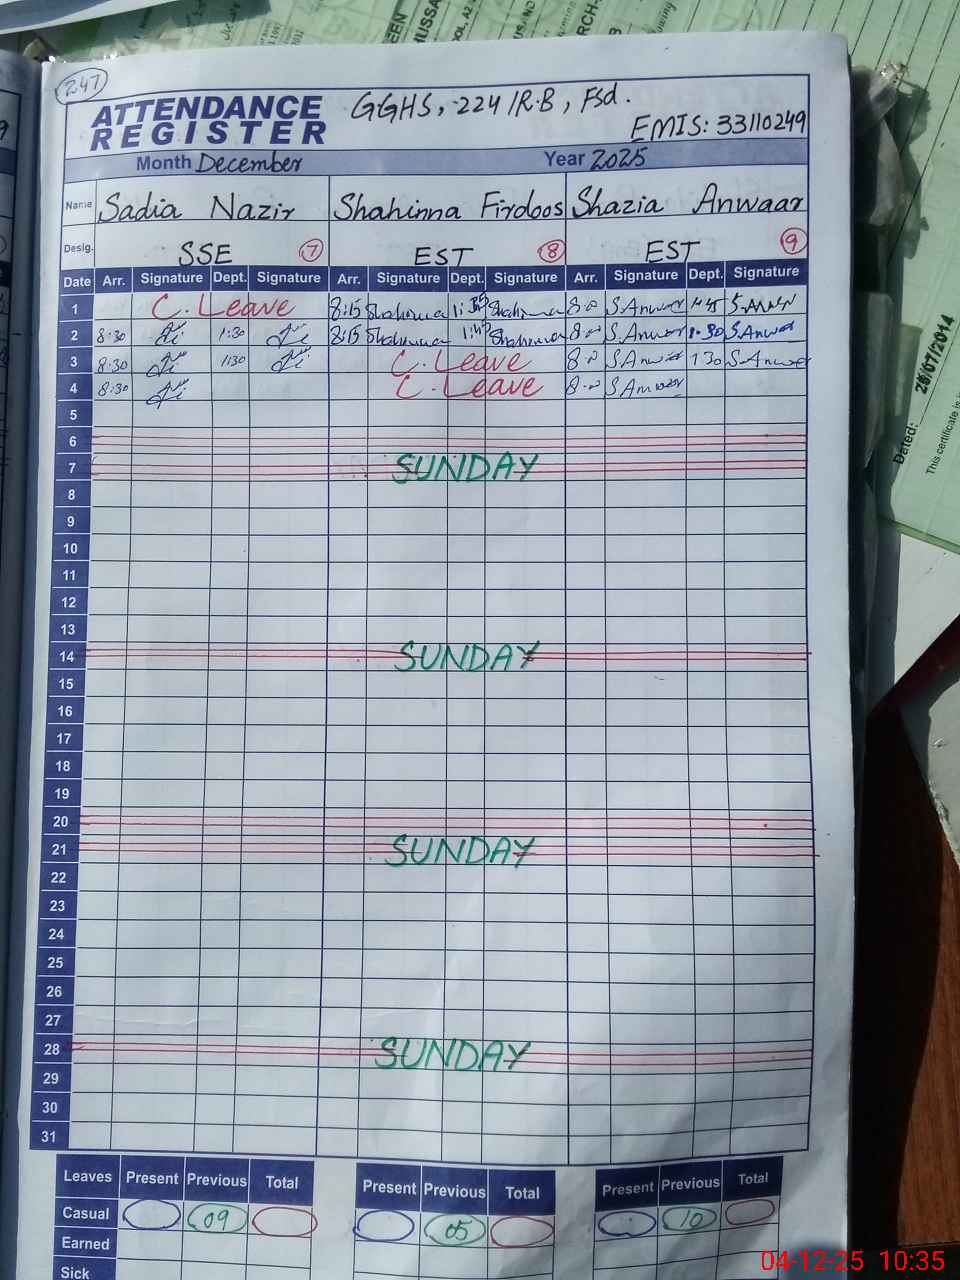 247
ATTENDANCE REGISTER
GGHS, 224/R.B, Fsd.
EMIS: 33110249
Month December Year 2025
Name Sadia Nazir Shahinna Firdoos Shazia Anwaar
Desig. SSE 7 EST 8 EST 9
Date Arr. Signature Dept. Signature Arr. Signature Dept. Signature Arr. Signature Dept. Signature
1 C. Leave 8:15 Shahinna Shahinna S.Anwar
2 8:30 1:30 8:15 Shahinna Shahinna S.Anwar 1.30 S.Anwar
3 8:30 1:30 C. Leave S.Anwar 130 S.Anwar
4 8:30 C. Leave S.Anwar
5
6
7 SUNDAY
8
9
10
11
12
13
14 SUNDAY
15
16
17
18
19
20
21 SUNDAY
22
23
24
25
26
27
28 SUNDAY
29
30
31
Leaves Present Previous Total Present Previous Total Present Previous Total
Casual 09 05 10
Earned
Sick
Dated: 28/07/2014
This certificate is
04-12-25 10:35